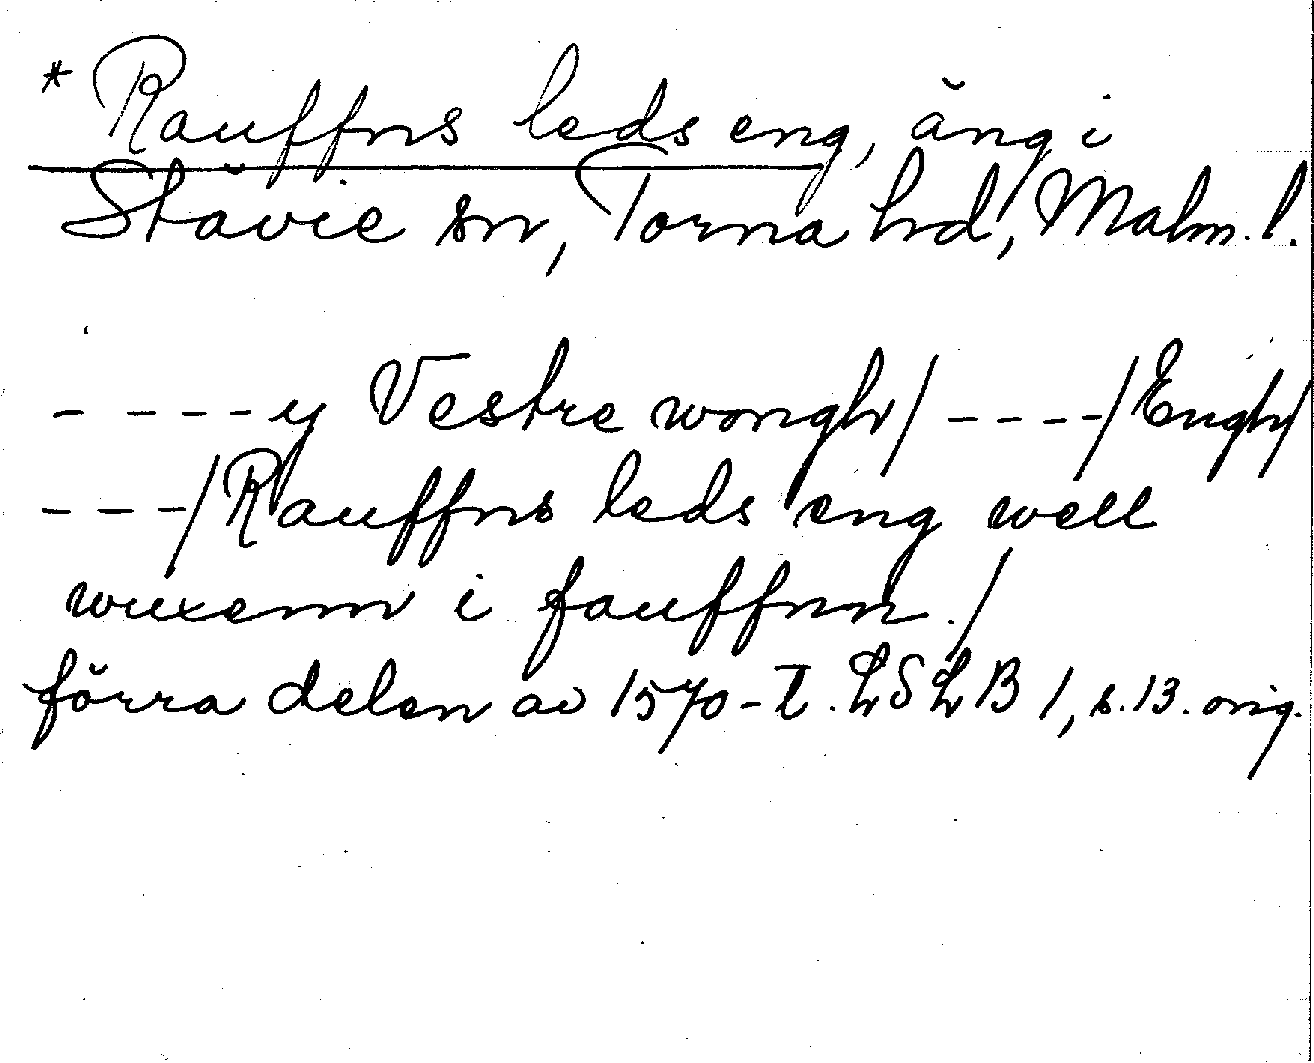 * Rauffns leds eng, äng i
Stävie sn, Torna hd, Malm. l.
- ---- y Vestre wongh/ ----/Engh/
---/Rauffns leds eng well
wuxenn i fauffnn./
förra delen av 1570-t. LSLB 1, s. 13. orig.